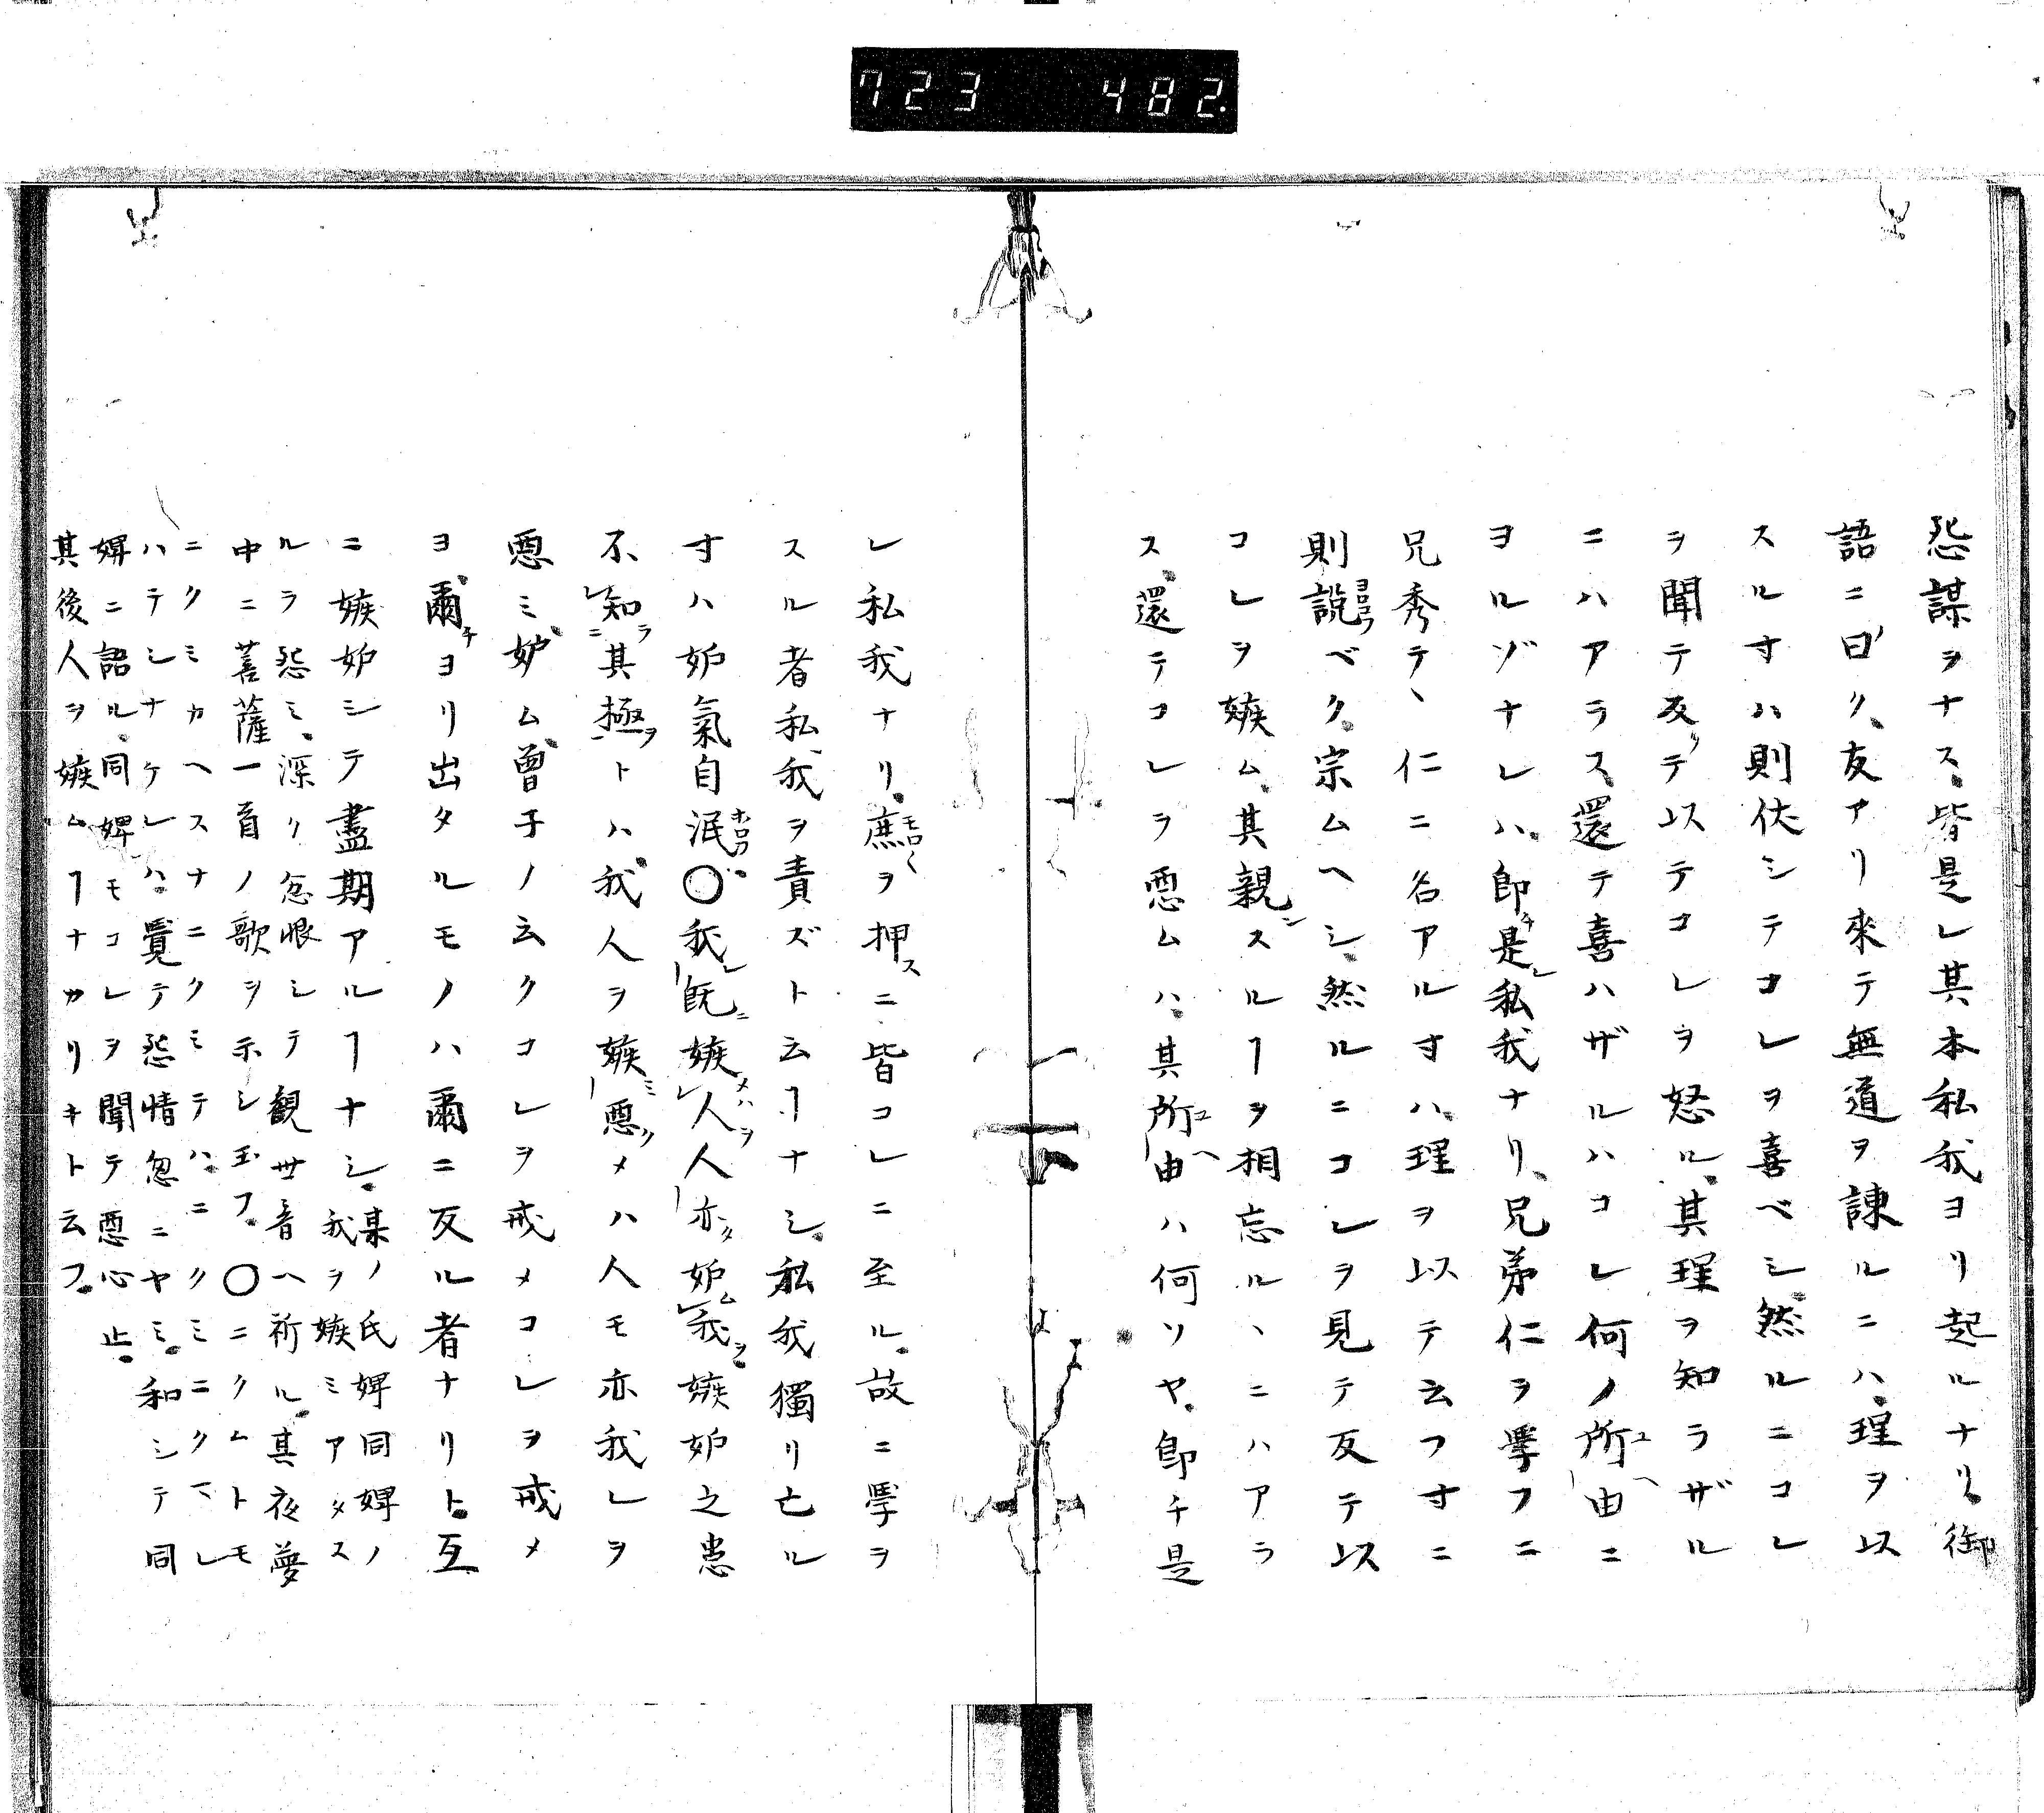 723 482.
怨謀ヲナス。皆是レ其本私我ヨリ起ルナリ。御
語ニ曰ク、友アリ來テ無道ヲ諌ルニハ、理ヲ以
スル寸ハ則伏シテコレヲ喜ベシ。然ルニコレ
ヲ聞テ反テ以テコレヲ怒ル。其理ヲ知ラザル
ニハアラス、還テ喜ハザルハコレ何ノ所由ニ
ヨルゾナレハ、即是私我ナリ。兄弟仁ヲ學フニ
兄秀テヽ仁ニ名アル寸ハ、理ヲ以テ云フ寸ニ
則説ベク、宗ムヘシ。然ルニコレヲ見テ反テ以
コレヲ嫉ム。其親スルヿヲ相忘ルヽニハアラ
ス、還テコレヲ悪ムハ、其所由ハ何ソヤ。即チ是
レ私我ナリ。庶ヲ押ニ皆コレニ至ル。故ニ學ヲ
スル者私我ヲ責ズト云ヿナシ。私我獨リ亡ル
寸ハ妒氣自泯。〇我既嫉人人亦妒我。嫉妒之患
不知其極トハ、我人ヲ嫉悪メハ人モ亦我レヲ
悪ミ妒ム。曽子ノ云クコレヲ戒メコレヲ戒メ
ヨ、爾ヨリ出タルモノハ爾ニ反ル者ナリト。互
ニ嫉妒シテ盡期アルヿナシ。某ノ氏婢同婢ノ
我ヲ嫉ミアタス
ルヲ怨ミ、深ク忿恨シテ観世音ヘ祈ル。其夜夢
中ニ菩薩一首ノ歌ヲ示シ玉フ。〇ニクムトモ
ニクミカヘスナニクミテハ、ニクミニクマレ
ハテシナケレハ。覺テ怨情忽ニヤミ。和シテ同
婢ニ語ル。同婢モコレヲ聞テ悪心止。
其後人ヲ嫉ムヿナカリキト云フ。